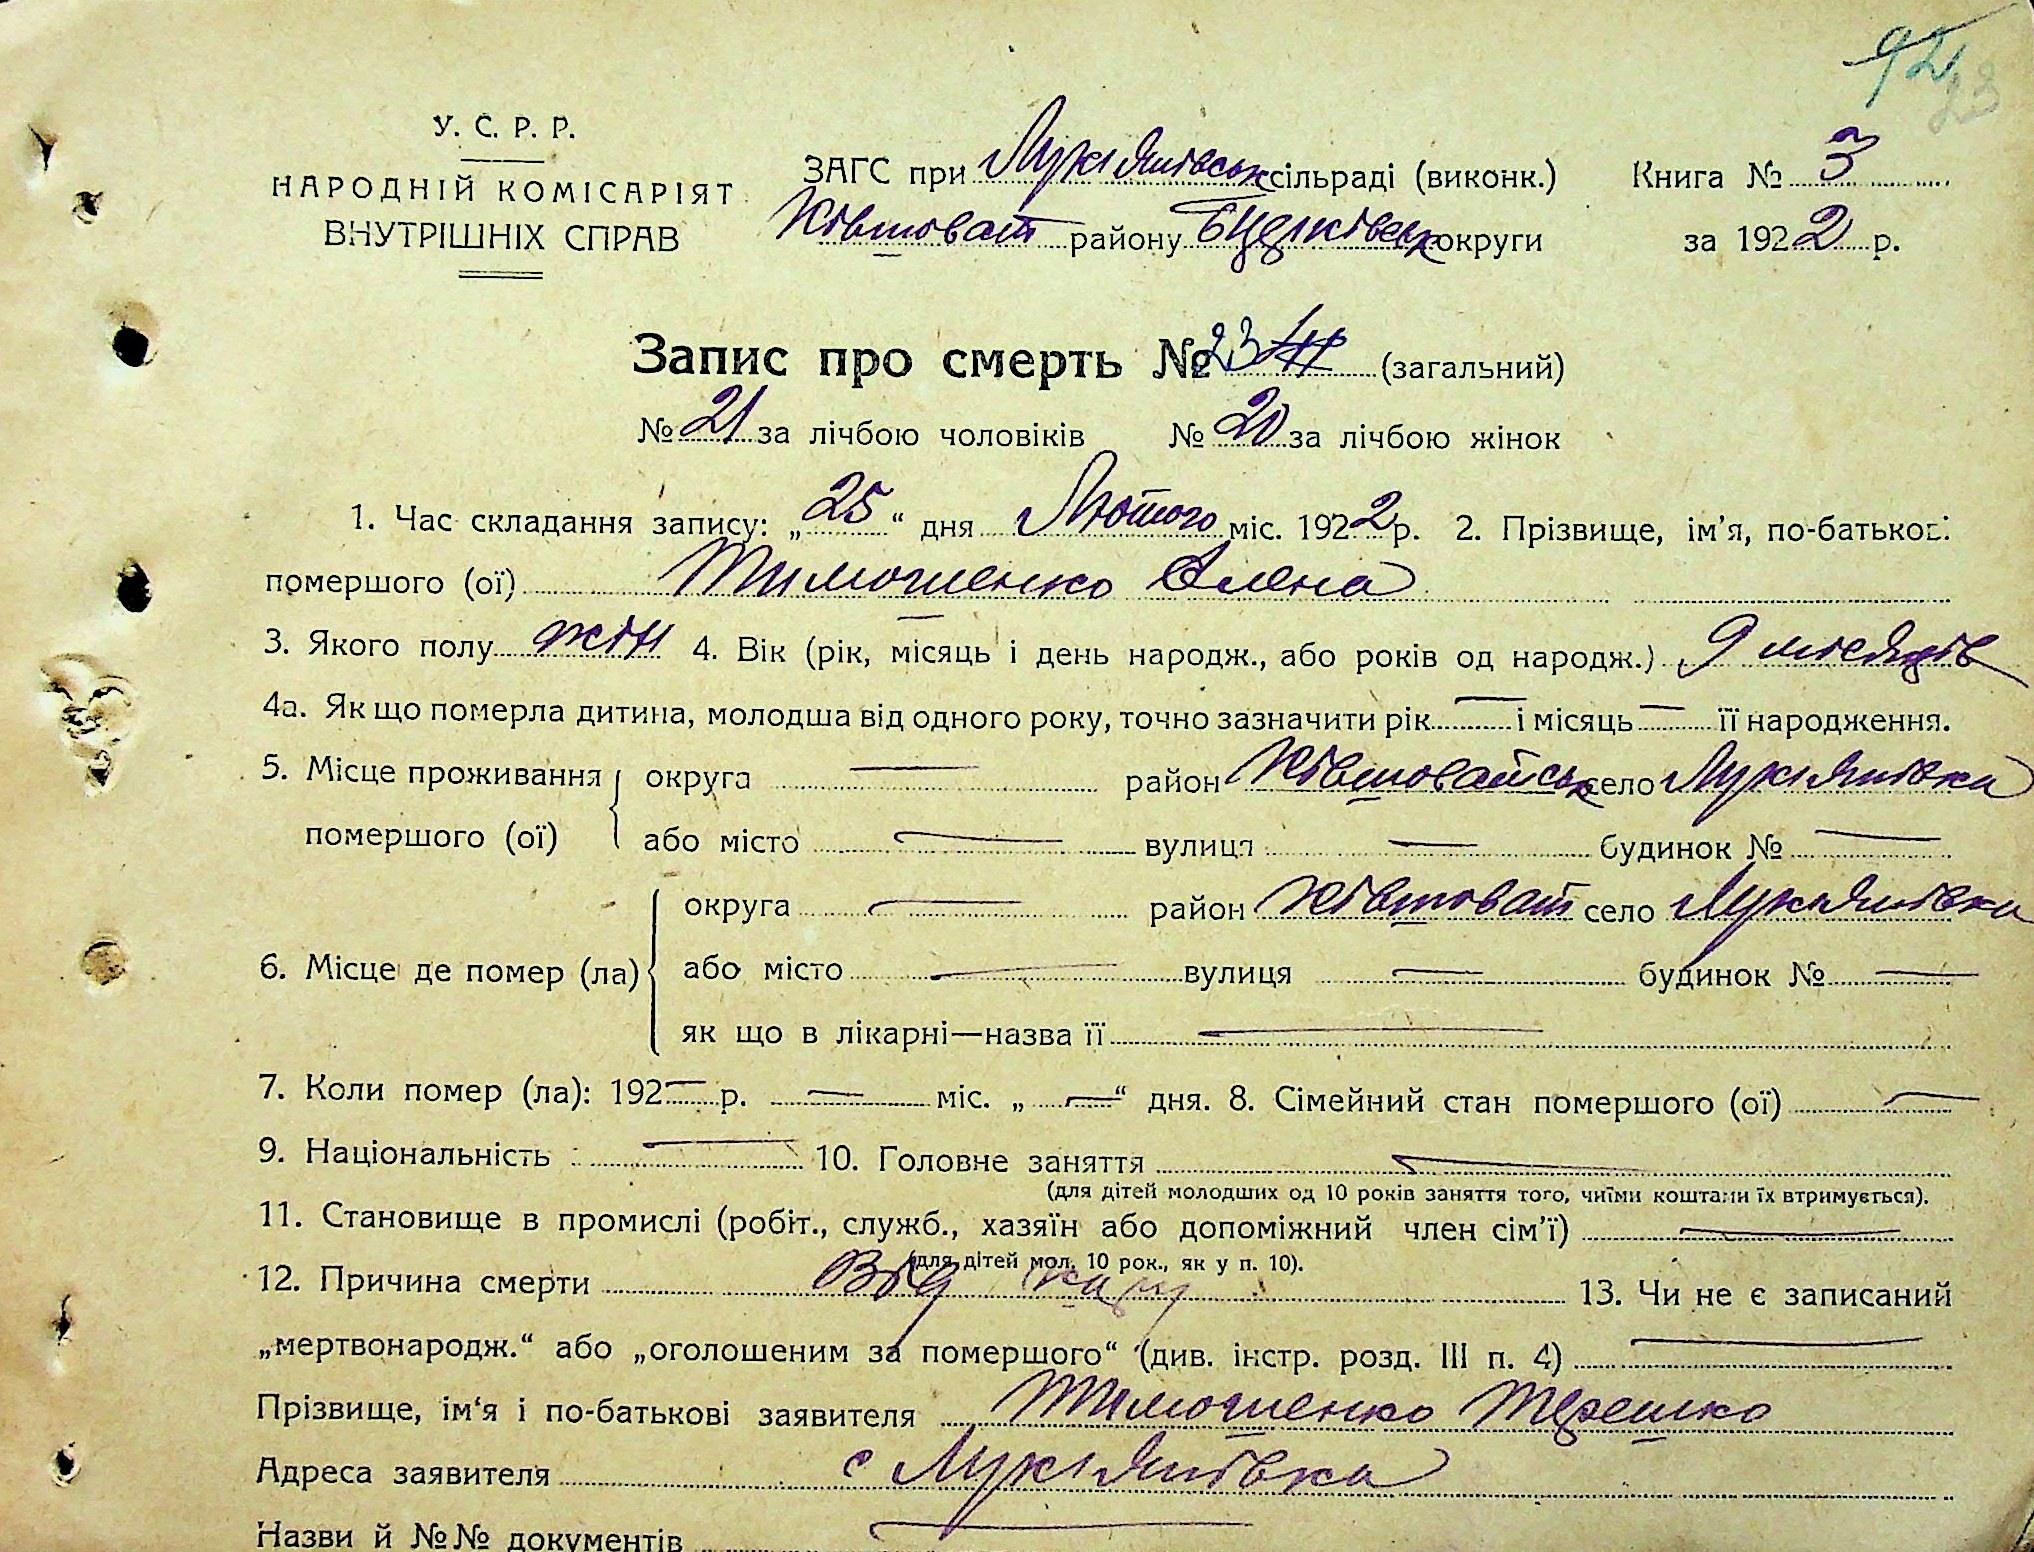 92
23
У. С. Р. Р.
НАРОДНІЙ КОМІСАРІЯТ
ВНУТРІШНІХ СПРАВ
ЗАГС при Лукіянівськ сільраді (виконк.)
Ківшоват району БЦерківськ округи
Книга № 3
за 1922 р.
Запис про смерть № 23 (загальний)
№ 21 за лічбою чоловіків № 20 за лічбою жінок
1. Час складання запису: „25“ дня Лютого міс. 1922 р. 2. Прізвище, ім'я, по-батькові
помершого (ої) Тимошенко Олена
3. Якого полу жін 4. Вік (рік, місяць і день народж., або років од народж.) 9 місяців
4а. Як що померла дитина, молодша від одного року, точно зазначити рік — і місяць — її народження.
5. Місце проживання помершого (ої) округа — район Ківшоватськ село Лукіянівка
або місто — вулиця — будинок № —
6. Місце де помер (ла) округа — район Ківшоват село Лукіянівка
або місто — вулиця — будинок № —
як що в лікарні—назва її —
7. Коли помер (ла): 192— р. — міс. „—“ дня. 8. Сімейний стан помершого (ої) —
9. Національність — 10. Головне заняття —
(для дітей молодших од 10 років заняття того, чиїми коштами їх втримується).
11. Становище в промислі (робіт., служб., хазяїн або допоміжний член сім'ї) —
(для дітей мол. 10 рок., як у п. 10).
12. Причина смерти Від кару 13. Чи не є записаний
„мертвонародж.“ або „оголошеним за помершого“ (див. інстр. розд. III п. 4) —
Прізвище, ім'я і по-батькові заявителя Тимошенко Терешко
Адреса заявителя с Лукіянівка
Назви й №№ документів —